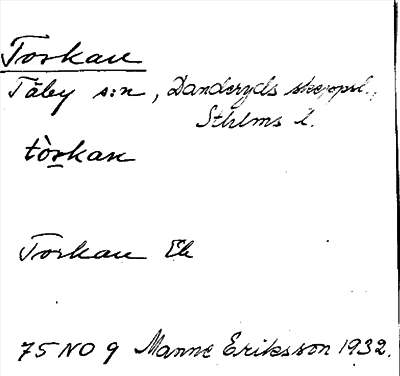 Torkan
Täby s:n, Danderyds skeppsl.,
Sthlms l.
tòrkan
Torkan Ek
75 NO 9 Manne Eriksson 1932.